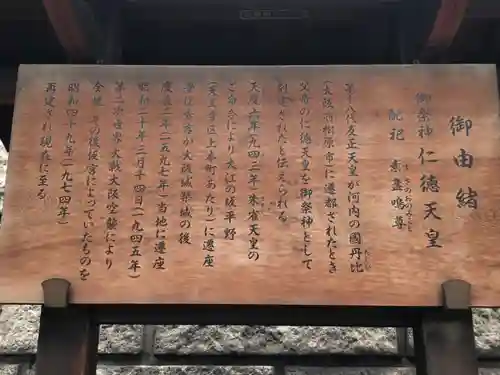 御由緒
御祭神 仁徳天皇
配祀 素盞嗚尊
すさのおのみこと
第十八代反正天皇が河内の國丹比
たじひ
(大阪府柏原市)に遷都されたとき
父君の仁徳天皇を御祭神として
創建されたと伝えられる
天慶六年(九四三年)朱雀天皇の
ご命令により大江の坂平野
(天王寺区上本町あたり)に遷座
豊臣秀吉が大阪城築城の後
慶長二年(一五九七年)当地に遷座
昭和二十年三月十四日(一九四五年)
第二次世界大戦大阪空襲により
全焼 その後仮宮によっていたものを
昭和四十九年(一九七四年)
再建され現在に至る